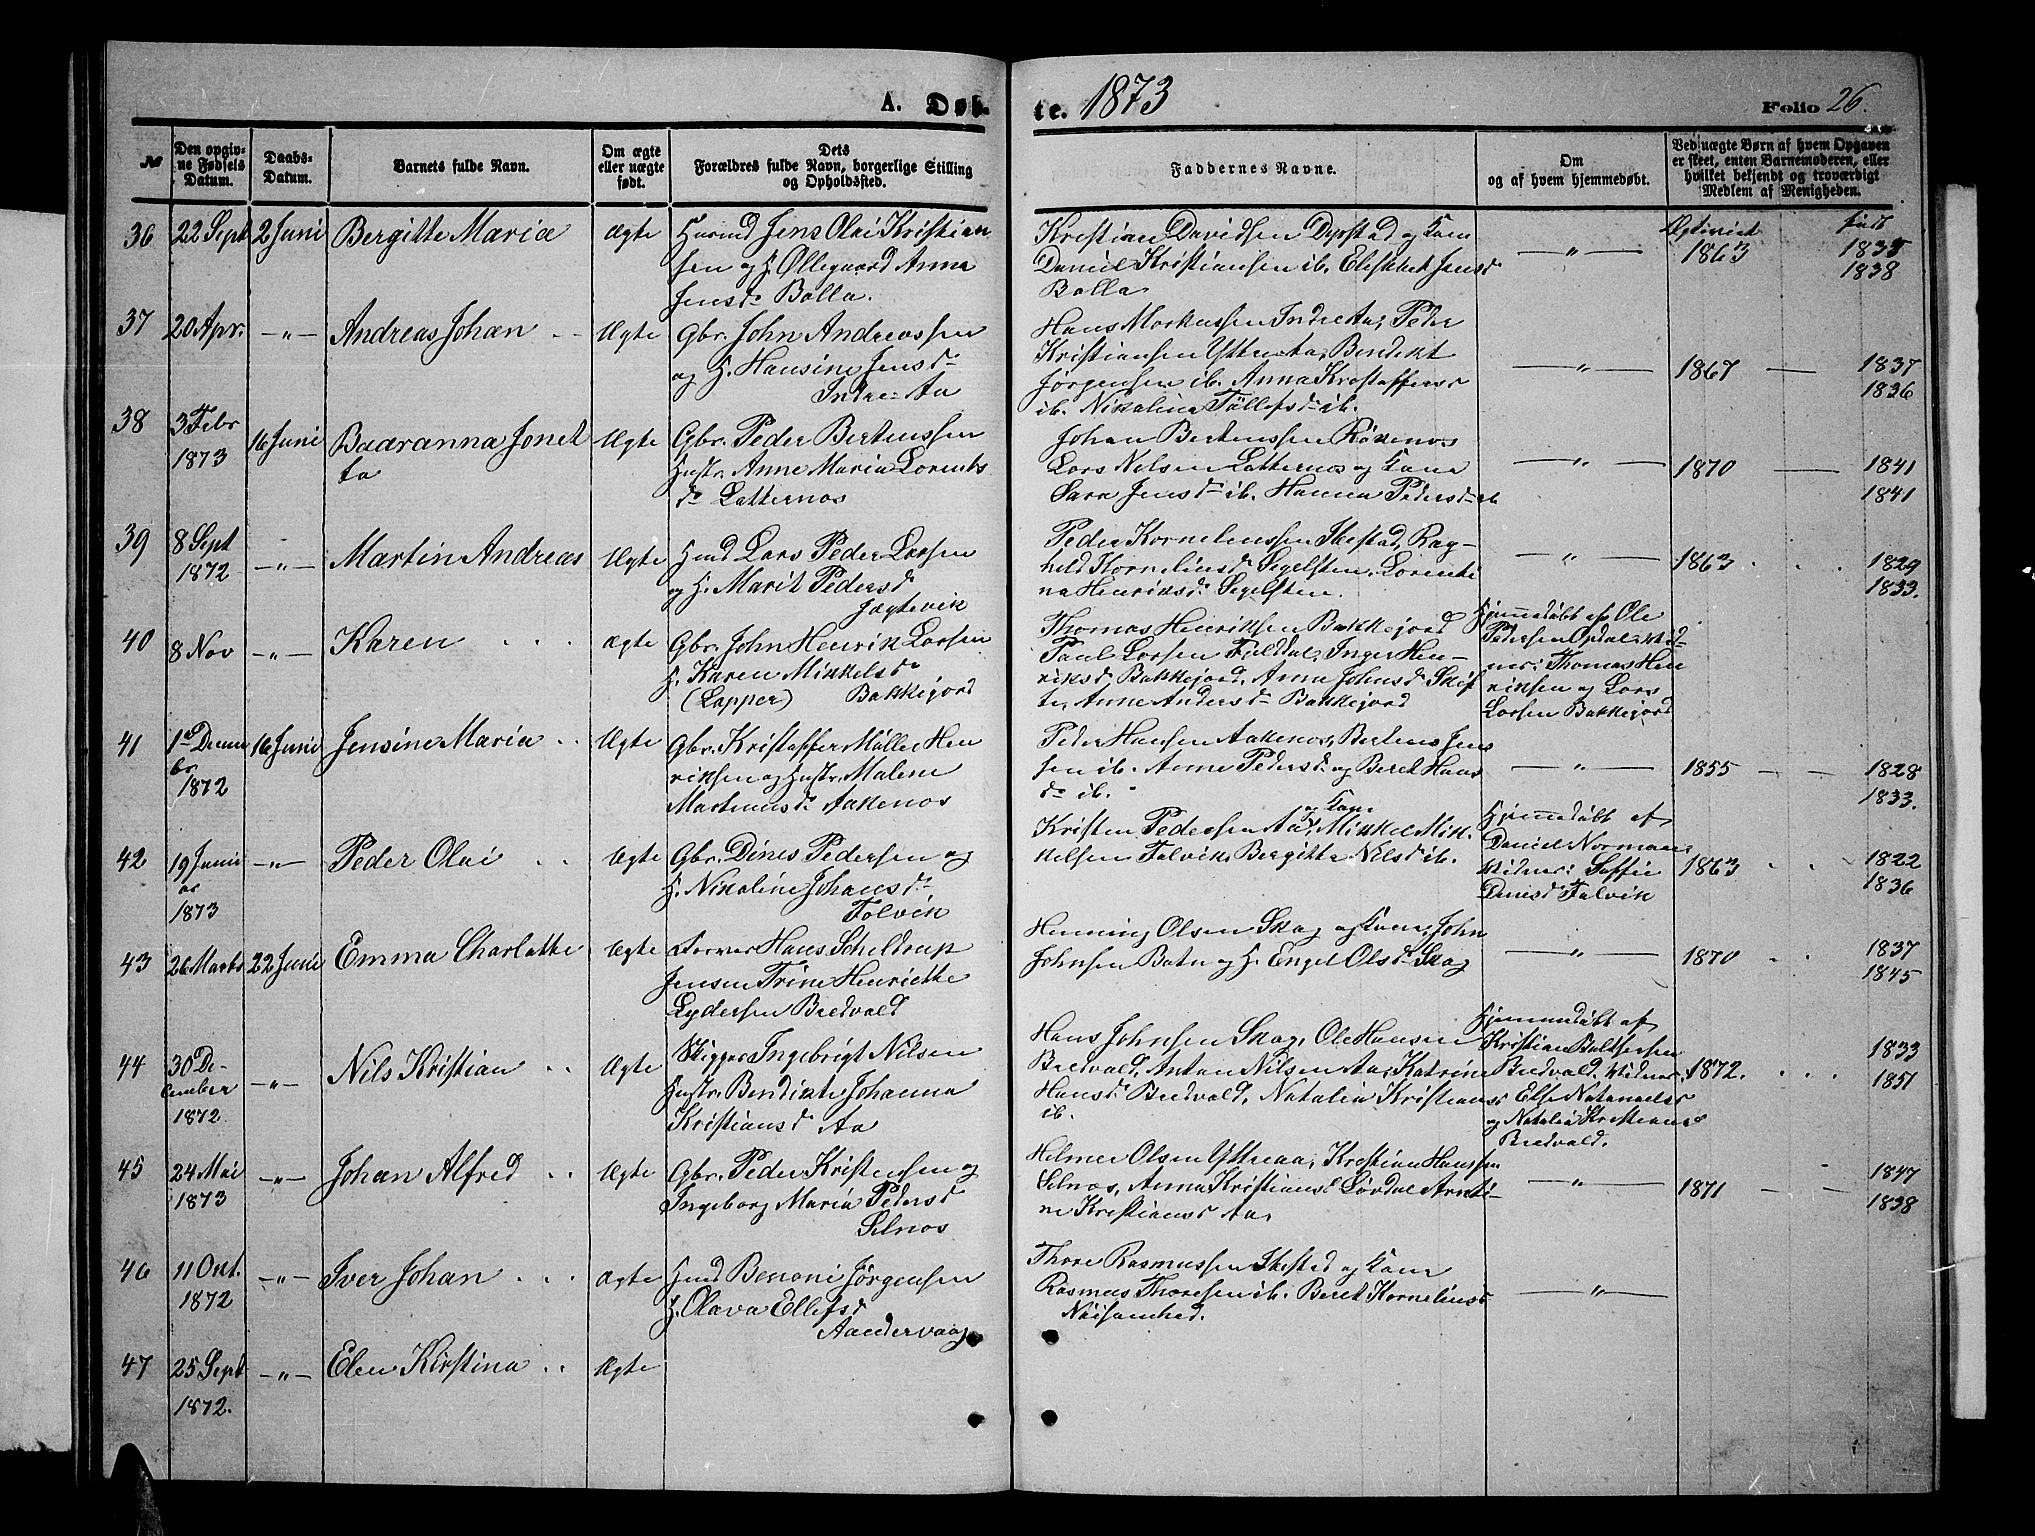 A. Døbte. 1873 Folio 26.
№
Den opgivne Fødsels Datum.
Daabs-Datum.
Barnets fulde Navn.
Om ægte eller uægte født.
Dets Forældres fulde Navn, borgerlige Stilling og Opholdsted.
Faddernes Navne.
Om og af hvem hjemmedøbt.
Ved uægte Børn af hvem Opgaven er skeet, enten Barnemoderen, eller hvilket bekjendt og troværdigt Medlem af Menigheden.
36 22 Sept 2 Juni Bergitte Maria Ægte
Jens Olai Kristian
sen og H. Ollegaard Anna
Jensd. Bolla.
Kristian Davidsen Dyrstad og Kone
Daniel Kristiansen ib. Elisabet Jensd
Bolla
— " —
født
1863 1835
1838
37 20 Apr. — " — Andreas Johan Ægte
Gbr. John Andreassen
og H. Hansine Jensd
Indre-Aa
Hans Markussen Indre Aa, Peder
Kristiansen Yttre Aa, Bendikt
Jørgensen ib. Anna Kristoffersd
ib. Nikolina Tollefsd ib.
— " —
1867 — 1837
1836
38 3 Febr 1873 16 Juni Baaranna Jonet
ta Ægte
Gbr. Peder Bertenssen
Hustr. Anne Maria Lorents
d. Latternos
Johan Bertenssen Røkenos
Lars Nilsen Latternos og Kone
Sara Jensd ib. Hanna Pedersd ib
— " —
1870 — 1841
1841
39 8 Sept 1872 — " — Martin Andreas Ægte
Hmd Lars Peder Larsen
og H. Marit Pedersd
Jægtevik
Peder Kornelinssen Ibestad, Rag-
hild Kornelinsd Segelsten, Lorenti
na Henriksd. Segelsten.
— " —
1863 1829
1833.
40 8 Nov — " — Karen Ægte
Gbr. John Henrik Larsen
H. Karen Mikkelsd
(Lapper) Bakkejord
Thomas Henriksen Bakkejord
Paul Larsen Fjelddal, Inger Hen-
riksd. Bakkejord, Anna Johnsd Skif
te, Anne Andersd Bakkejord
Hjemmedøbt af Ole
Pedersen Opdal, Vid-
ner: Thomas Hen
riksen og Lars
Larsen Bakkejord
41 1 Decem
br 1872 16 Juni Jensine Maria Ægte
Gbr. Kristoffer Møller Hen
riksen og Hustr. Malene
Martinusd. Aakenos
Peder Hansen Aakenos, Bertens Jens
sen ib. Anne Pedersd. og Beret Hans
d. ib.
— " —
1855 — — 1828
1833.
42 19 Janu
ar 1873 — " — Peder Olai Ægte
Gbr. Dines Pedersen og
H. Nikoline Johansd.
Tolvik
Kristen Pederssen Aa og Kone, Mikkel Mik
kelsen Tolvik, Bergitte Nilsd ib.
Hjemmedøbt af
Daniel Norman
Vidner: Soffie
Dinesd Tolvik
1863 1822
1836
43 26 Marts 22 Juni Emma Charlotte Ægte
Hans Scheldrup
Jensen Trine Henriette
Lydersen Bredvald
Henning Olsen Skog og Kone, John
Johnsen Batn og H. Engel Olsd Skog
— " —
1870 1837
1845
44 30 De-
cember 1872 — " — Nils Kristian Ægte
Skipper Ingebrigt Nilsen
Hustr. Bendikte Johanna
Kristiansd Aa
Hans Johnsen Skog, Ole Hansen
Bredvald, Anton Nilsen Aa, Katrine
Hansd. Bredvald, Natalia Kristiansd
ib.
Hjemmedøbt af
Kristian Baltsersen
Bredvald. Vidner:
Else Natanaelsd
og Natalia Kristiansd
Bredvald.
1872. 1833
1851
45 24 Mai 1873 — " — Johan Alfred Ægte
Gbr. Peder Kristensen og
Ingeborg Maria Pedersd
Selnos
Helmer Olsen Yttreaa, Kristian Hanssen
Selnos, Anna Kristiansd Lørdal Arnti-
ne Kristiansd Aa,
— " —
1871 — — 1847
1838
46 11 Okt. 1872 — " — Iver Johan Ægte
Hmd Benoni Jørgensen
H. Olava Ellefsd
Aandervaag
Thore Rasmussen Ibestad og Kone
Rasmus Thoresen ib. Beret Kornelinsd
Nøisomhed.
— " —
47 25 Sept 1872. — " — Elen Kirstina Ægte